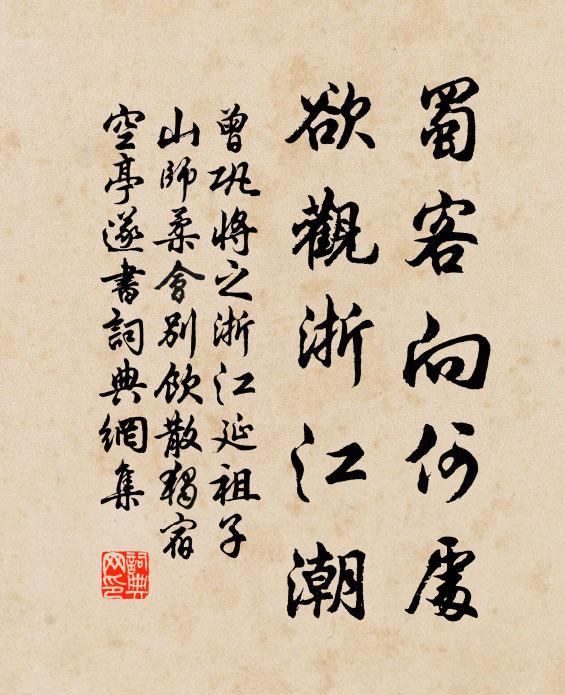 蜀客向何處
欲觀浙江潮
曾巩將之浙江延祖子
山師柔會別飲散獨宿
空亭遂書詞典網集
詞典网印